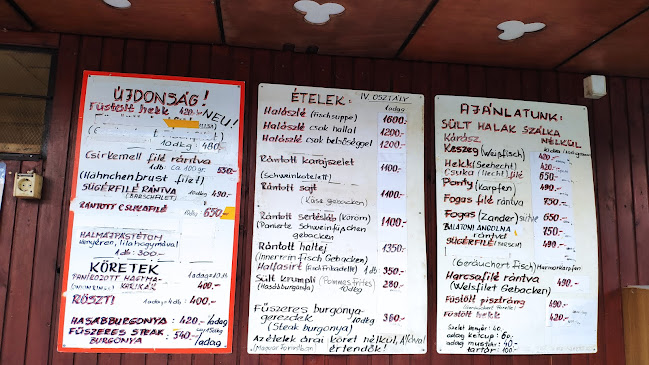 ÚJDONSÁG!
Füstölt hekk 420.-
NEU!
10dkg 480.-
Csirkemell filé rántva 550.-
1db ca. 100gr.
(Hähnchenbrust filet)
SÜGÉRFILÉ RÁNTVA 490.-
RÁNTOTT CSUKAFILÉ 650.-
HALMÁJPÁSTÉTOM
kenyéren, lilahagymával
1db: 300.-
KÖRETEK
PANÍROZOTT HAGYMA-
KARIKÁK 400.-
RÖSZTI 400.-
HASÁBBURGONYA 420.-/adag
FŰSZERES STEAK
BURGONYA 540.-/adag
ÉTELEK:
IV. OSZTÁLY
1adag
Halászlé (Fischsuppe) 1600.-
Halászlé csak hallal 1200.-
Halászlé csak belsőséggel 1200.-
Rántott karajszelet 1100.-
(Schweinkotelett)
Rántott sajt 1100.-
(Käse gebacken)
Rántott sertésláb (Köröm) 1100.-
(Panierte Schweinfüschen
gebacken
Rántott haltej 1350.-
(innerrein fisch Gebacken)
Halfasírt 1db: 350.-
Sült krumpli (Pommes frites) 280.-
(Hasábburgonya) 10dkg
Fűszeres burgonya-
gerezdek 10dkg 360.-
(Steak burgonya)
Az ételek árai köret nélkül, Áfával
(Magyar Forintban) értendők!
AJÁNLATUNK:
SÜLT HALAK SZÁLKA
NÉLKÜL
Kárász
Keszeg (Weissfisch) 420.-
Hekk (Seehecht) 420.-
Csuka (Hecht) filé 650.-
Ponty (Karpfen) 490.-
Fogas filé rántva 750.-
Fogas (Zander) sütve 650.-
BALATONI ANGOLNA
rántva 750.-
SÜGÉRFILÉ 490.-
(Geräuchert fisch)
Harcsafilé rántva 490.-
(Welsfilet Gebacken)
Füstölt pisztráng 490.-
Füstölt hekk 420.-
Szelet kenyér: 40.-
adag ketchup: 60.-
adag mustár: 40.-
tartár: 100.-